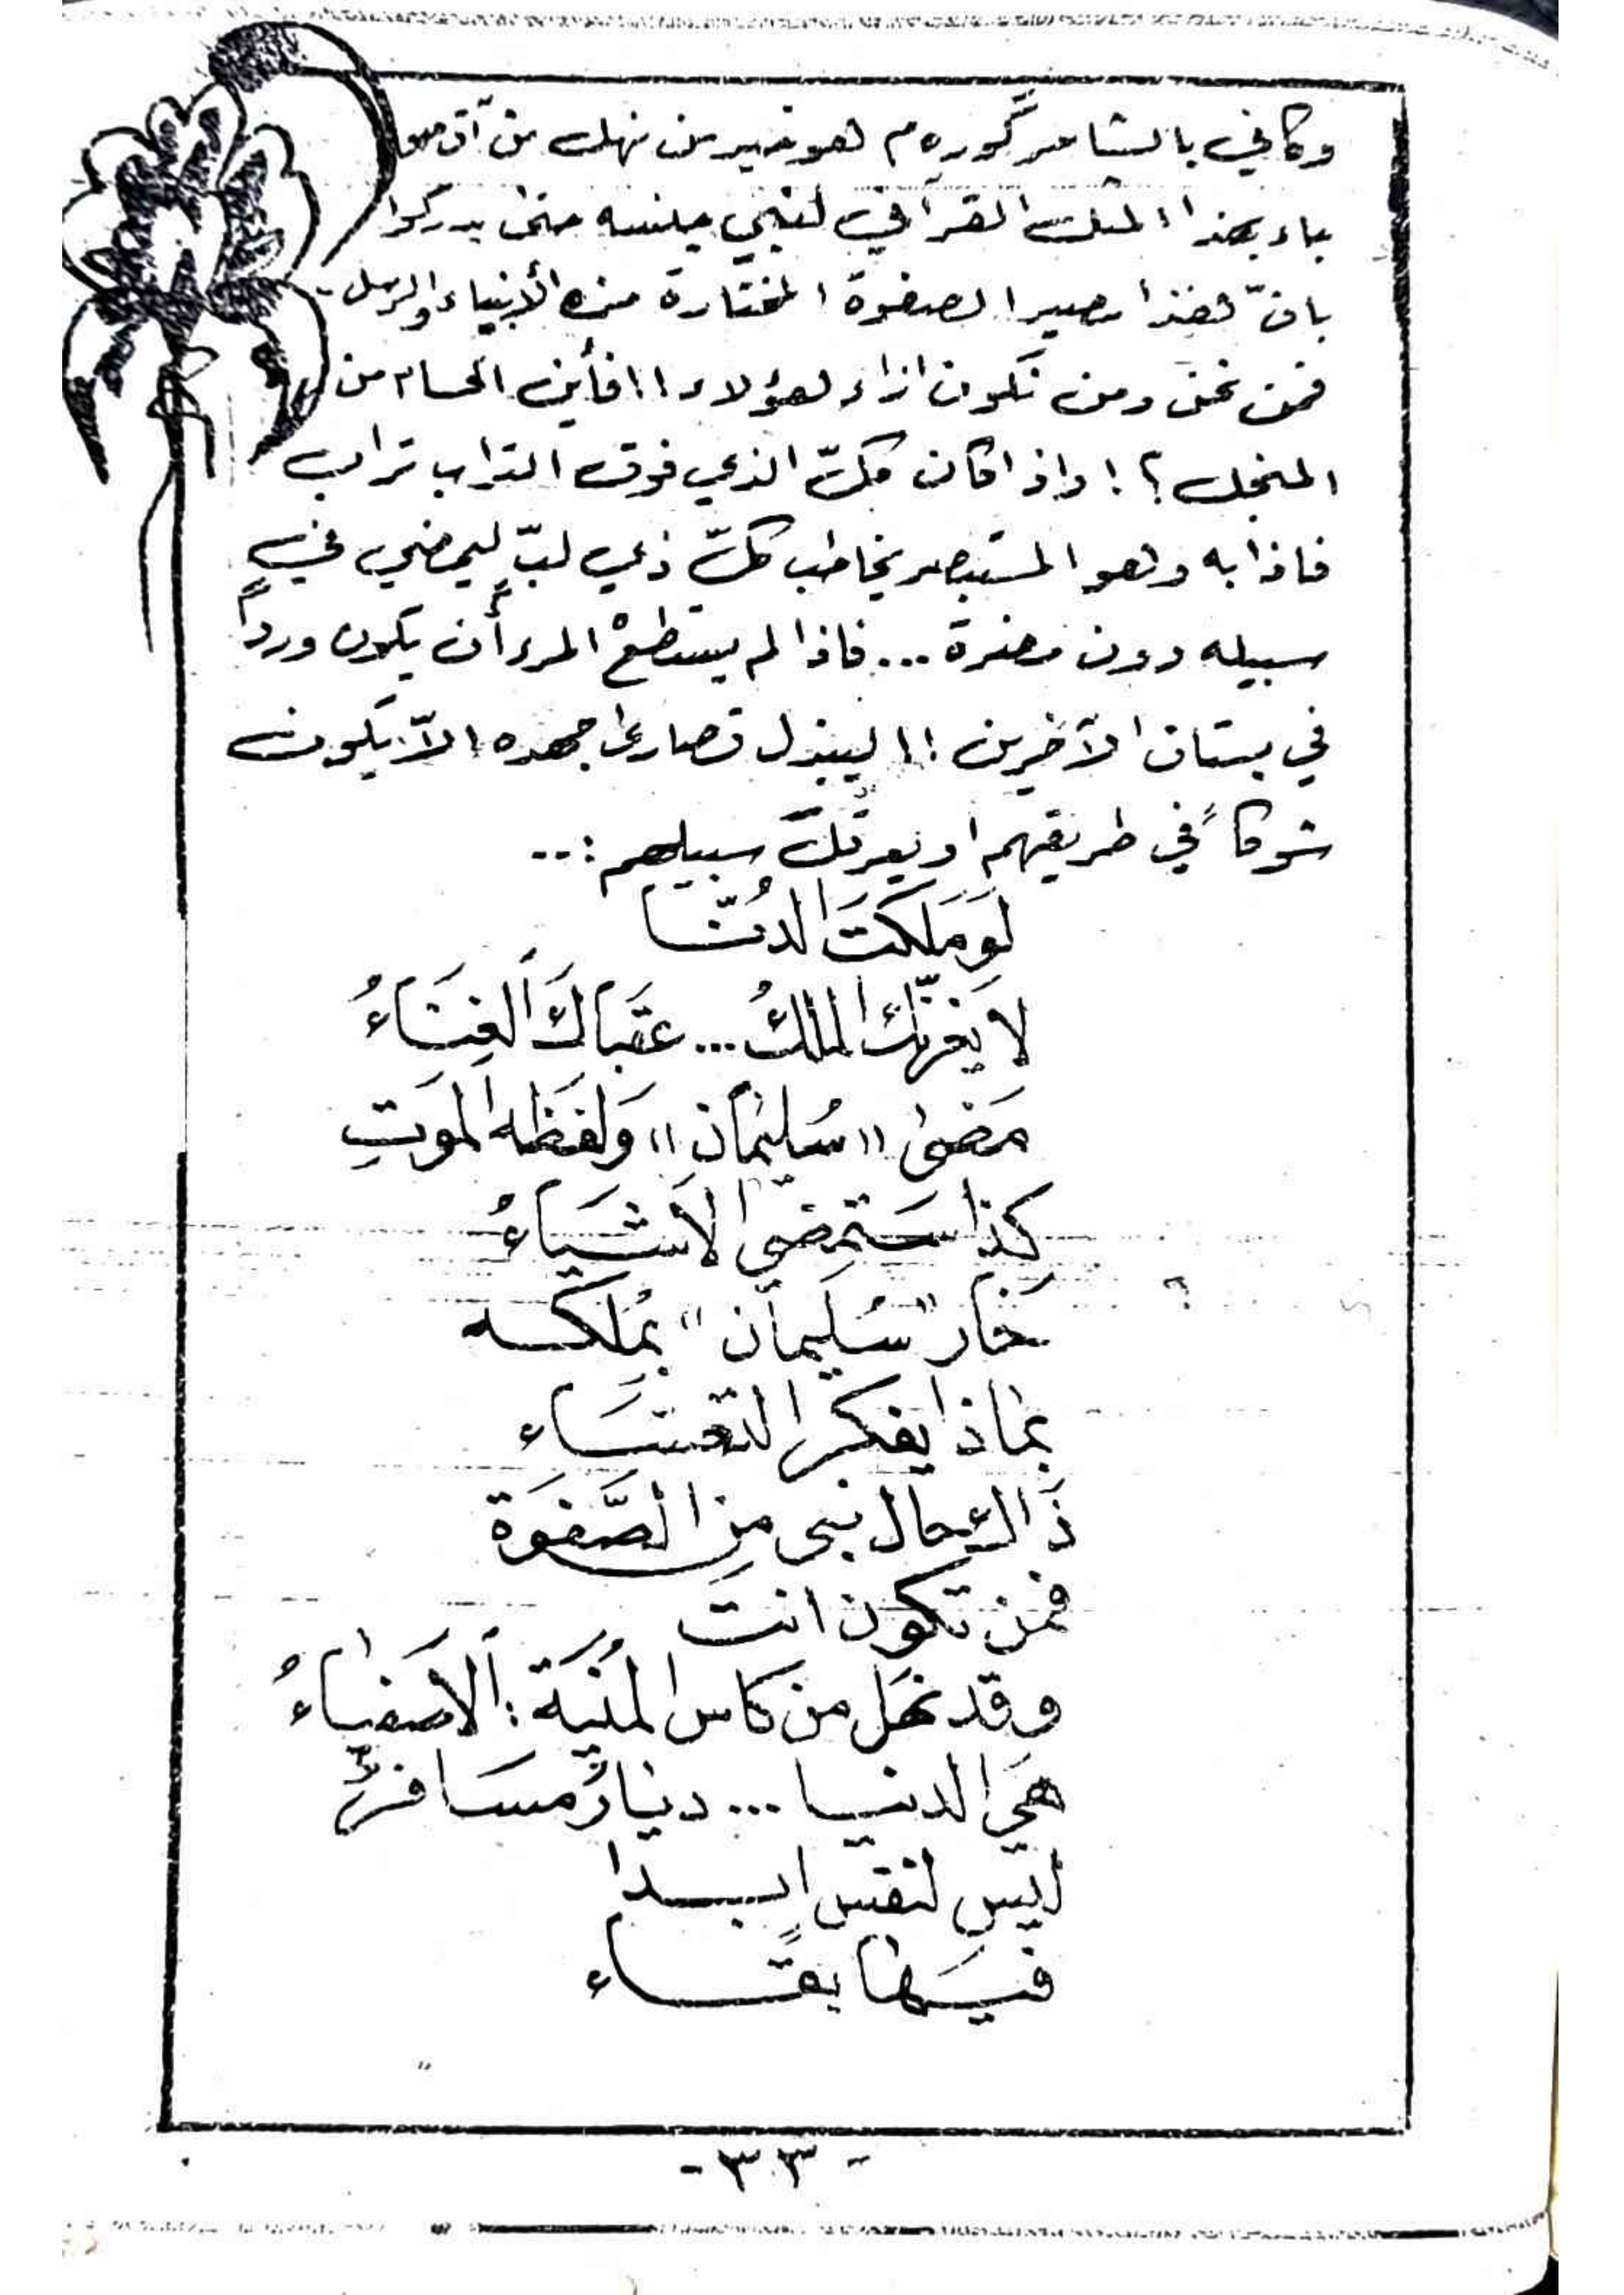 وكأني بالشاعر گوره م هو خير من نهل من آق
باء بهذا المثل القرآني لبني جنسه حتى يدركوا
بانّ هذا مصير الصفوة المختارة من الأنبياء والرسل.
فمن نحن ومن نكون ازاء هؤلاء !! فأين الحسام من
المنجل ؟! واذا كان كلّ الذي فوق التراب تراب
فاذا به وهو المستبصر يخاطب كلّ ذي لبّ ليمضي في
سبيله دون مضرة ... فاذا لم يستطعْ المرء أن يكون ورداً
في بستان الآخرين !! ليبذل قصارى جهده الاّ يكون
شوكاً في طريقهم او يعرقل سبيلهم :..
لَو مَلَكتَ الدُنّيا
لا يَغرنّك الملكُ ... عقبَاكَ الفِنَاءُ
مَضىٰ «سُليمَان» وَلفَظه الموَتِ
كذا ستَمضي الاَشيَاءُ
حَار "سُلَيمان" بمُلكه
بماذا يفكر التعسَاء
ذَاك حال نبي مِن الصَّفوَة
فمن تكون انتَ
وقد نهَل من كاس المُنيَة : الاَصفيَاءُ
هَي الدنيا ... دنيا مسَافرٌ
ليس لنفسٍ ابدا
فيهَا بقاء
-٣٣-